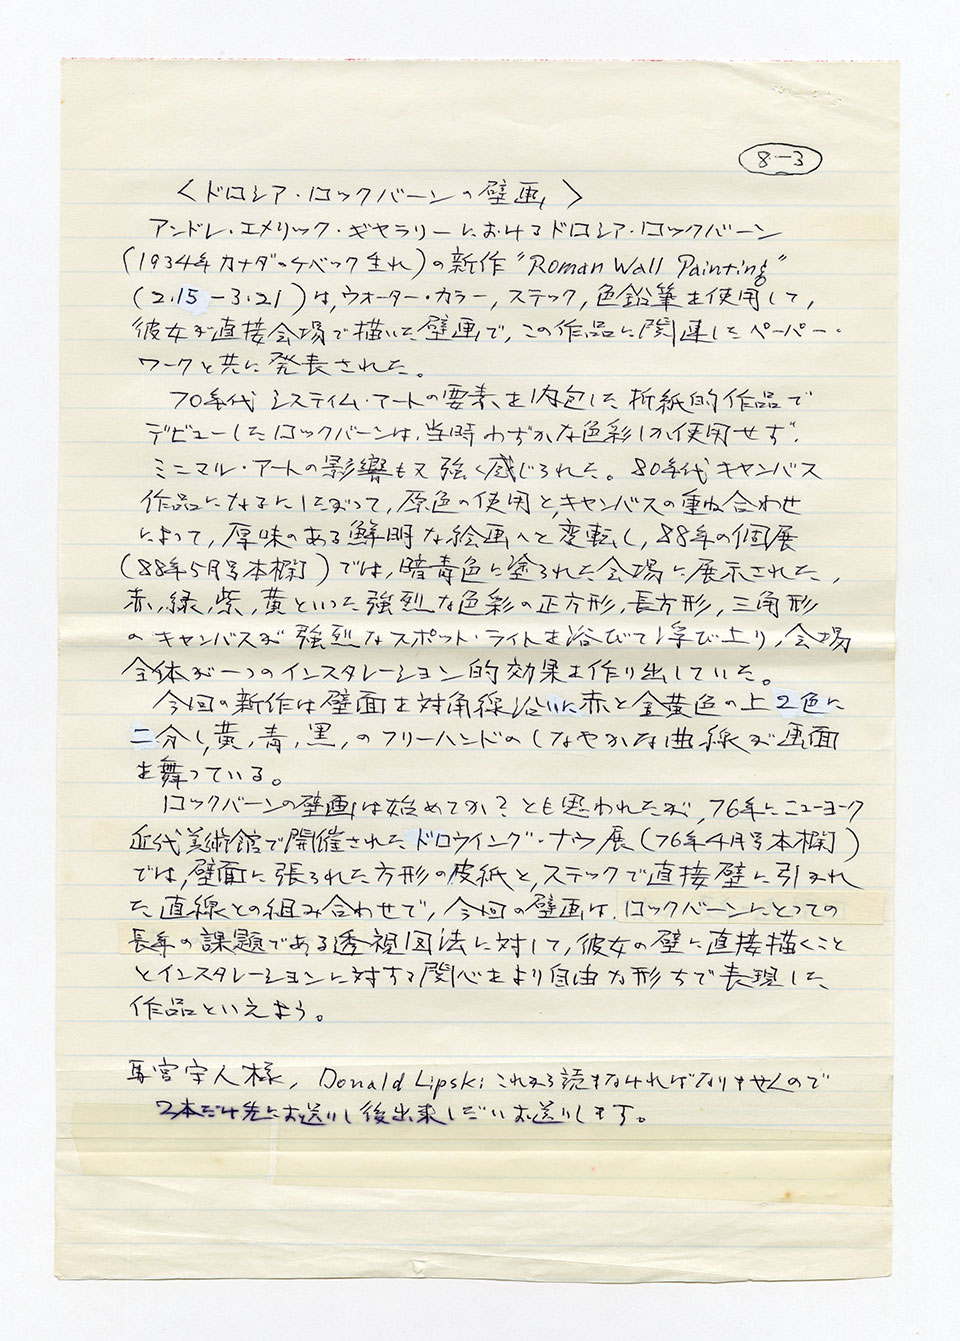 8-3
〈ドロシア・ロックバーンの壁画〉
アンドレ・エメリック・ギャラリーにおけるドロシア・ロックバーン
(1934年カナダのケベック生れ)の新作"Roman Wall Painting"
(2.15-3.21)は,ウォーター・カラー,ステック,色鉛筆を使用して,
彼女が直接会場で描いた壁画で,この作品に関連したペーパー・
ワークと共に発表された。
70年代システィム・アートの要素を内包した折紙的作品で
デビューしたロックバーンは,当時わずかな色彩しか使用せず,
ミニマル・アートの影響も又強く感じられた。80年代キャンバス
作品になるにしたがって,原色の使用と,キャンバスの重ね合わせ
によって,厚味のある鮮明な絵画へと変転し,88年の個展
(88年5月号本欄)では,暗青色に塗られた会場に展示された,
赤,緑,紫,黄といった強烈な色彩の正方形,長方形,三角形
のキャンバスが強烈なスポット・ライトを浴びて浮び上り,会場
全体が一つのインスタレーション的効果を作り出していた。
今回の新作は壁面を対角線沿いに赤と金黄色の上2色に
二分し,黄,青,黒,のフリーハンドのしなやかな曲線が画面
を舞っている。
ロックバーンの壁画は始めてか?とも思われたが,76年にニューヨーク
近代美術館で開催されたドロウイング・ナウ展(76年4月号本欄)
では,壁面に張られた方形の皮紙と,ステックで直接壁に引かれ
た直線との組み合わせで,今回の壁画は,ロックバーンにとっての
長年の課題である透視図法に対して,彼女の壁に直接描くこと
とインスタレーションに対する関心をより自由な形ちで表現した
作品といえよう。
馬宮守人様, Donald Lipskiこれから読まなければなりませんので
2本だけ先にお送りし後出来しだいお送りします。